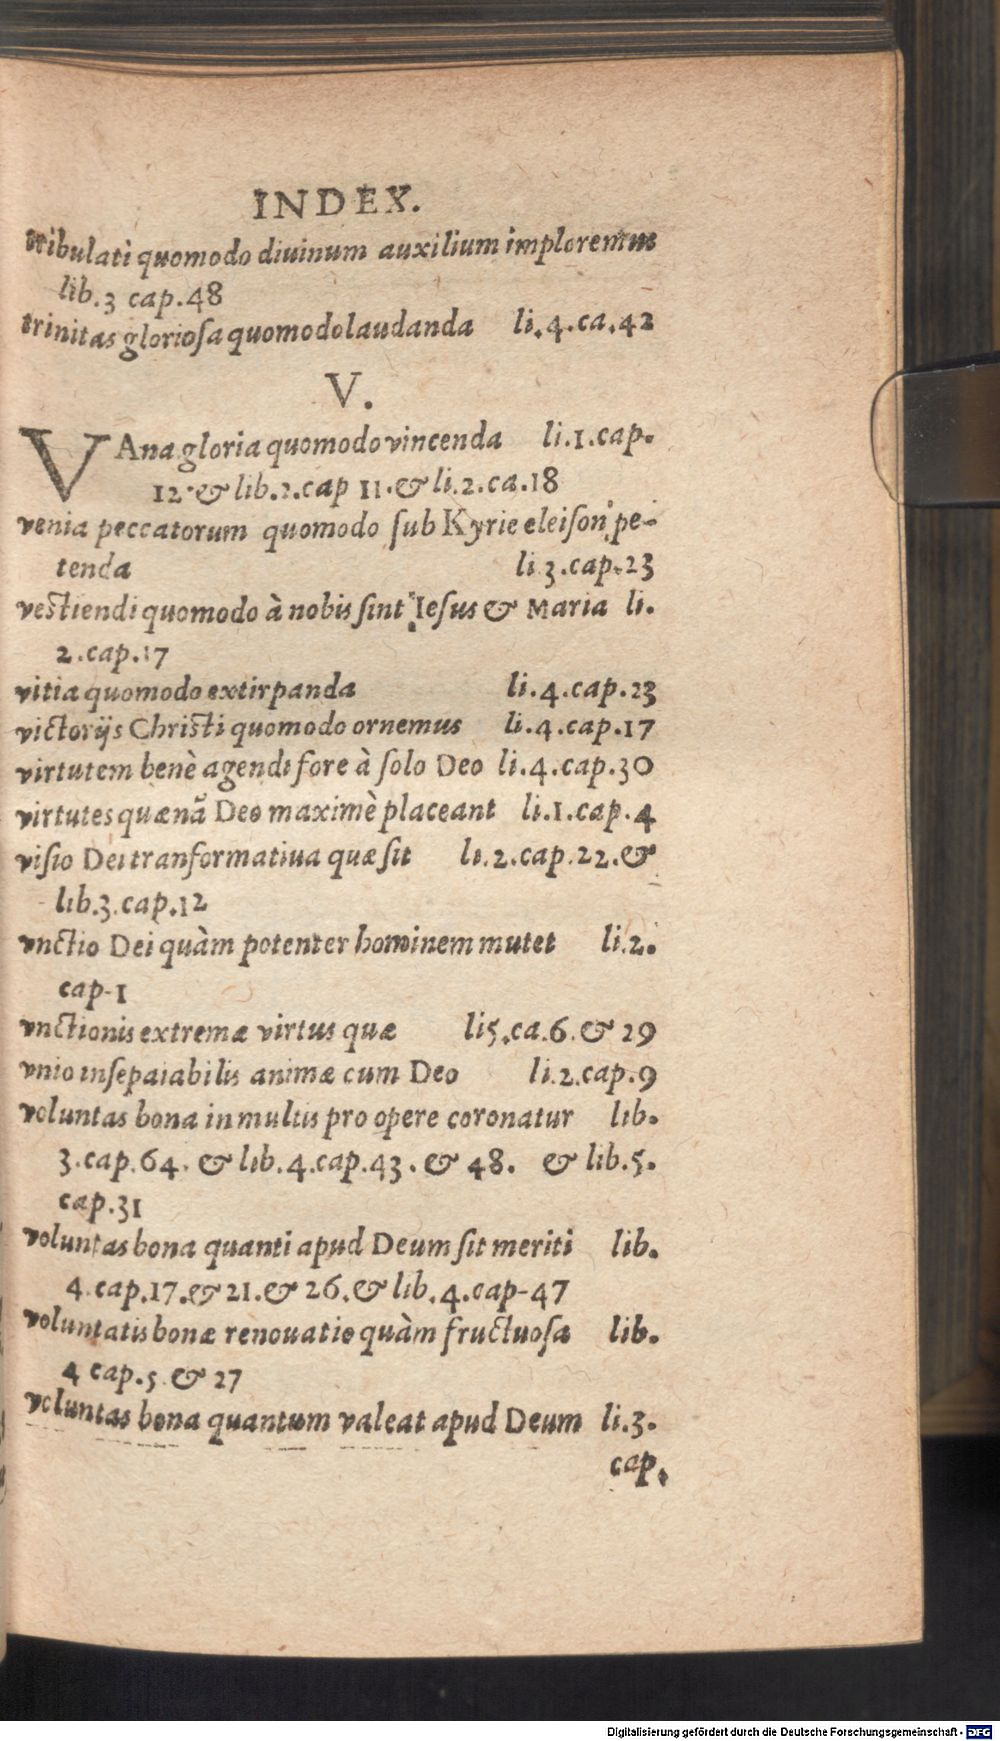 INDEX.
tribulati quomodo diuinum auxilium imploremus
lib.3 cap.48
trinitas gloriosa quomodo laudanda li.4.ca.42
V.
VAna gloria quomodo vincenda li.1.cap.
12.& lib.2.cap 11.& li.2.ca.18
venia peccatorum quomodo sub Kyrie eleison pe-
tenda li 3.cap.23
vestiendi quomodo à nobis sint Iesus & Maria li.
2.cap.17
vitia quomodo extirpanda li.4.cap.23
victorijs Christi quomodo ornemus li.4.cap.17
virtutem benè agendi fore à solo Deo li.4.cap.30
virtutes quænã Deo maximè placeant li.1.cap.4
visio Dei tranformatiua quæ sit li.2.cap.22.&
lib.3.cap.12
vnctio Dei quàm potenter hominem mutet li.2.
cap-1
vnctionis extremæ virtus quæ li5.ca.6.& 29
vnio insepaiabilis animæ cum Deo li.2.cap.9
voluntas bona in multis pro opere coronatur lib.
3.cap.64. & lib.4.cap.43. & 48. & lib.5.
cap.31
voluntas bona quanti apud Deum sit meriti lib.
4.cap.17.& 21.& 26.& lib.4.cap-47
voluntatis bonæ renouatio quàm fructuosa lib.
4 cap.5 & 27
voluntas bona quantum valeat apud Deum li.3.
cap.
Digitalisierung gefördert durch die Deutsche Forschungsgemeinschaft - DFG